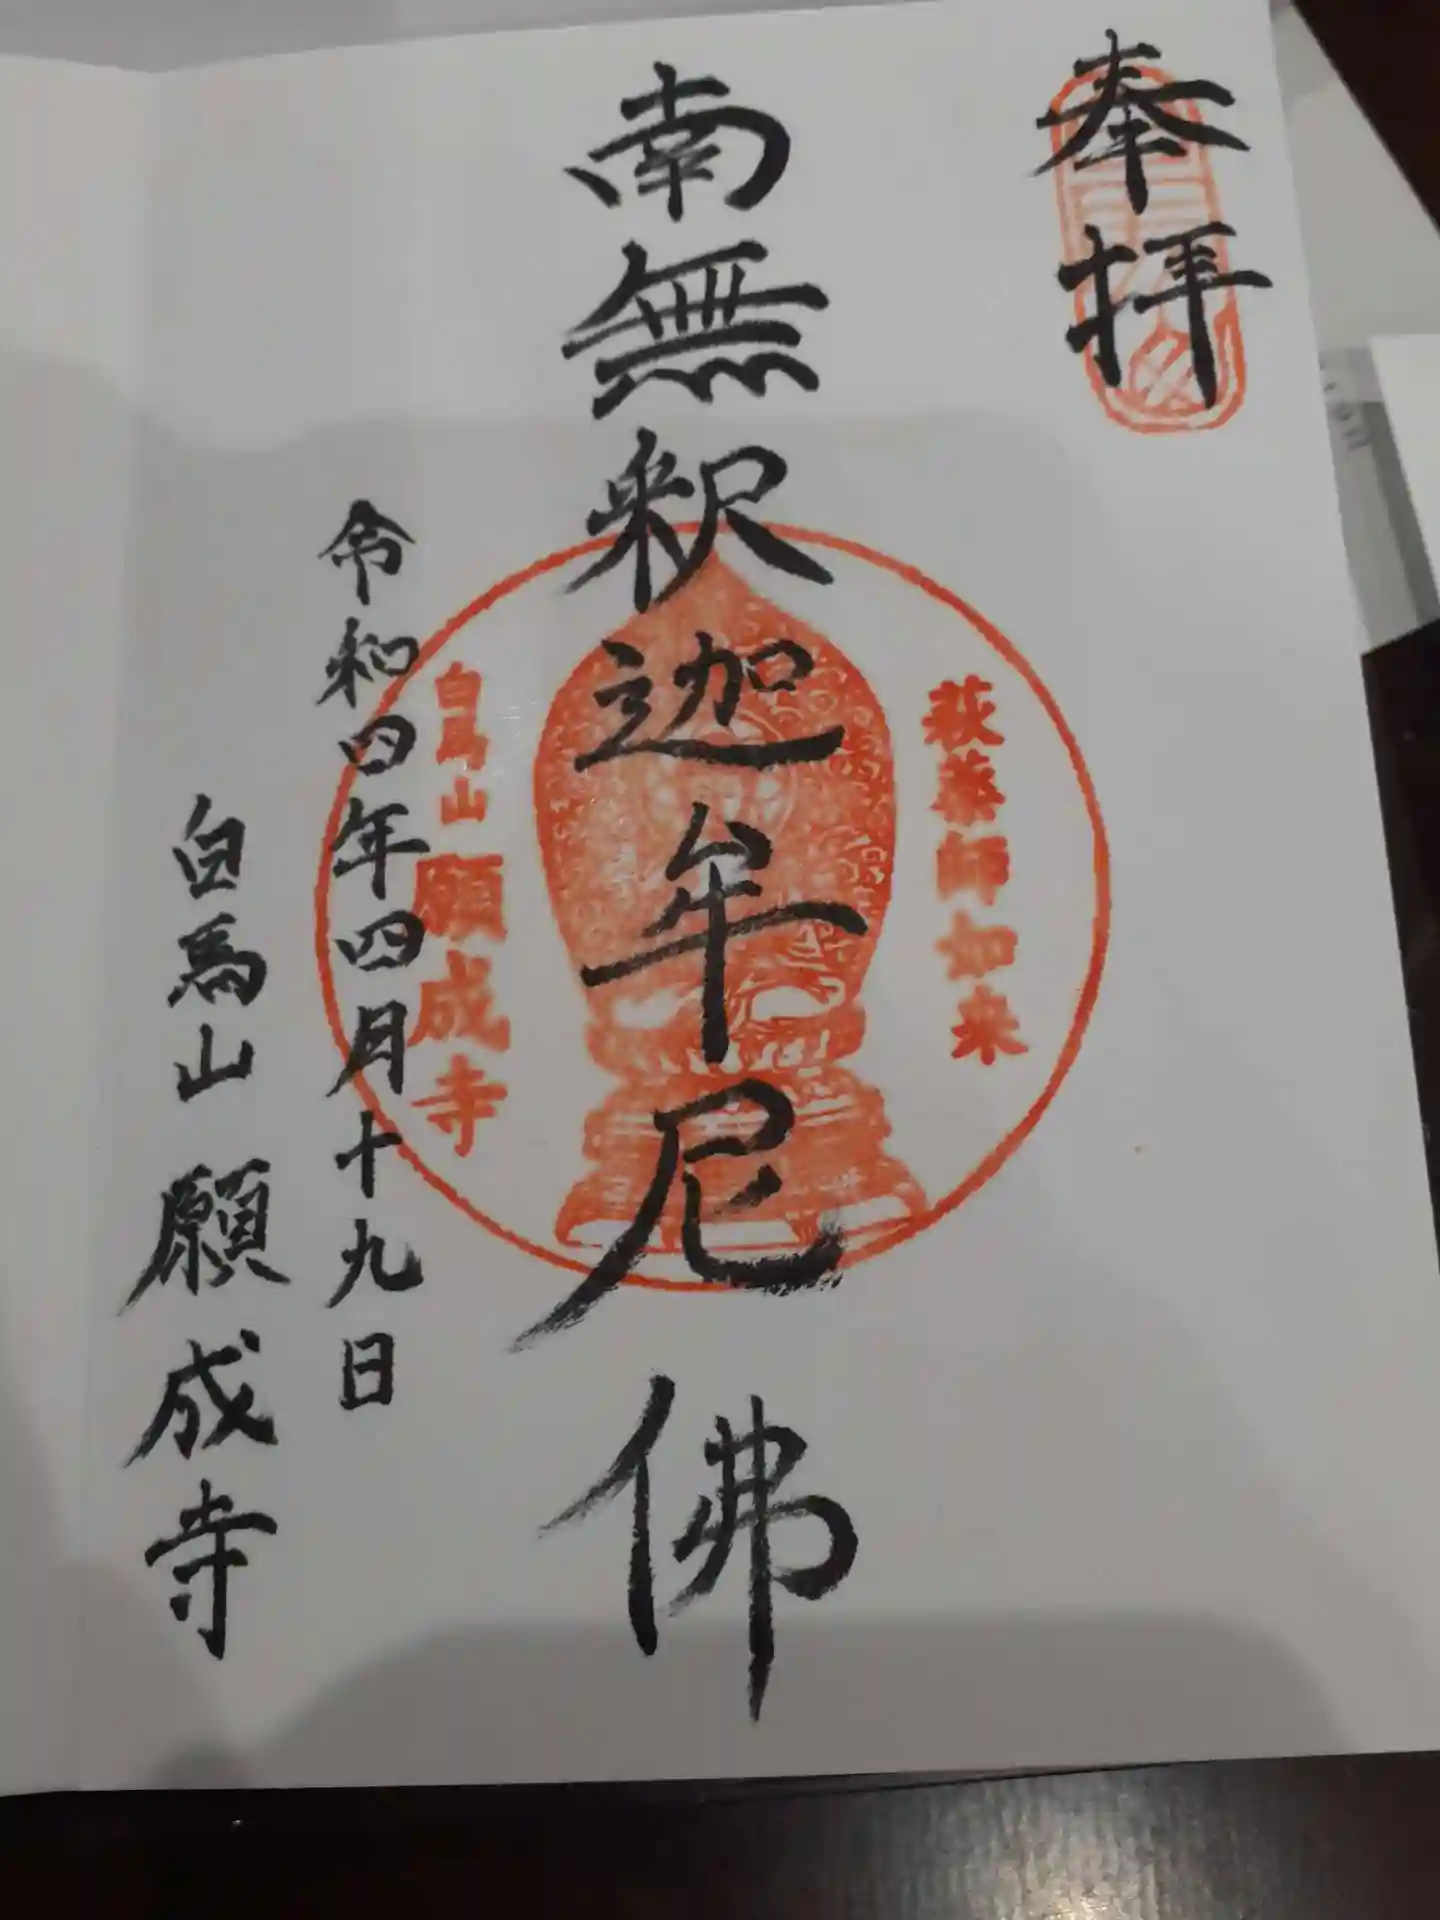 奉拝
萩薬師如来
南無釈迦牟尼佛
白馬山願成寺
令和四年四月十九日
白馬山願成寺